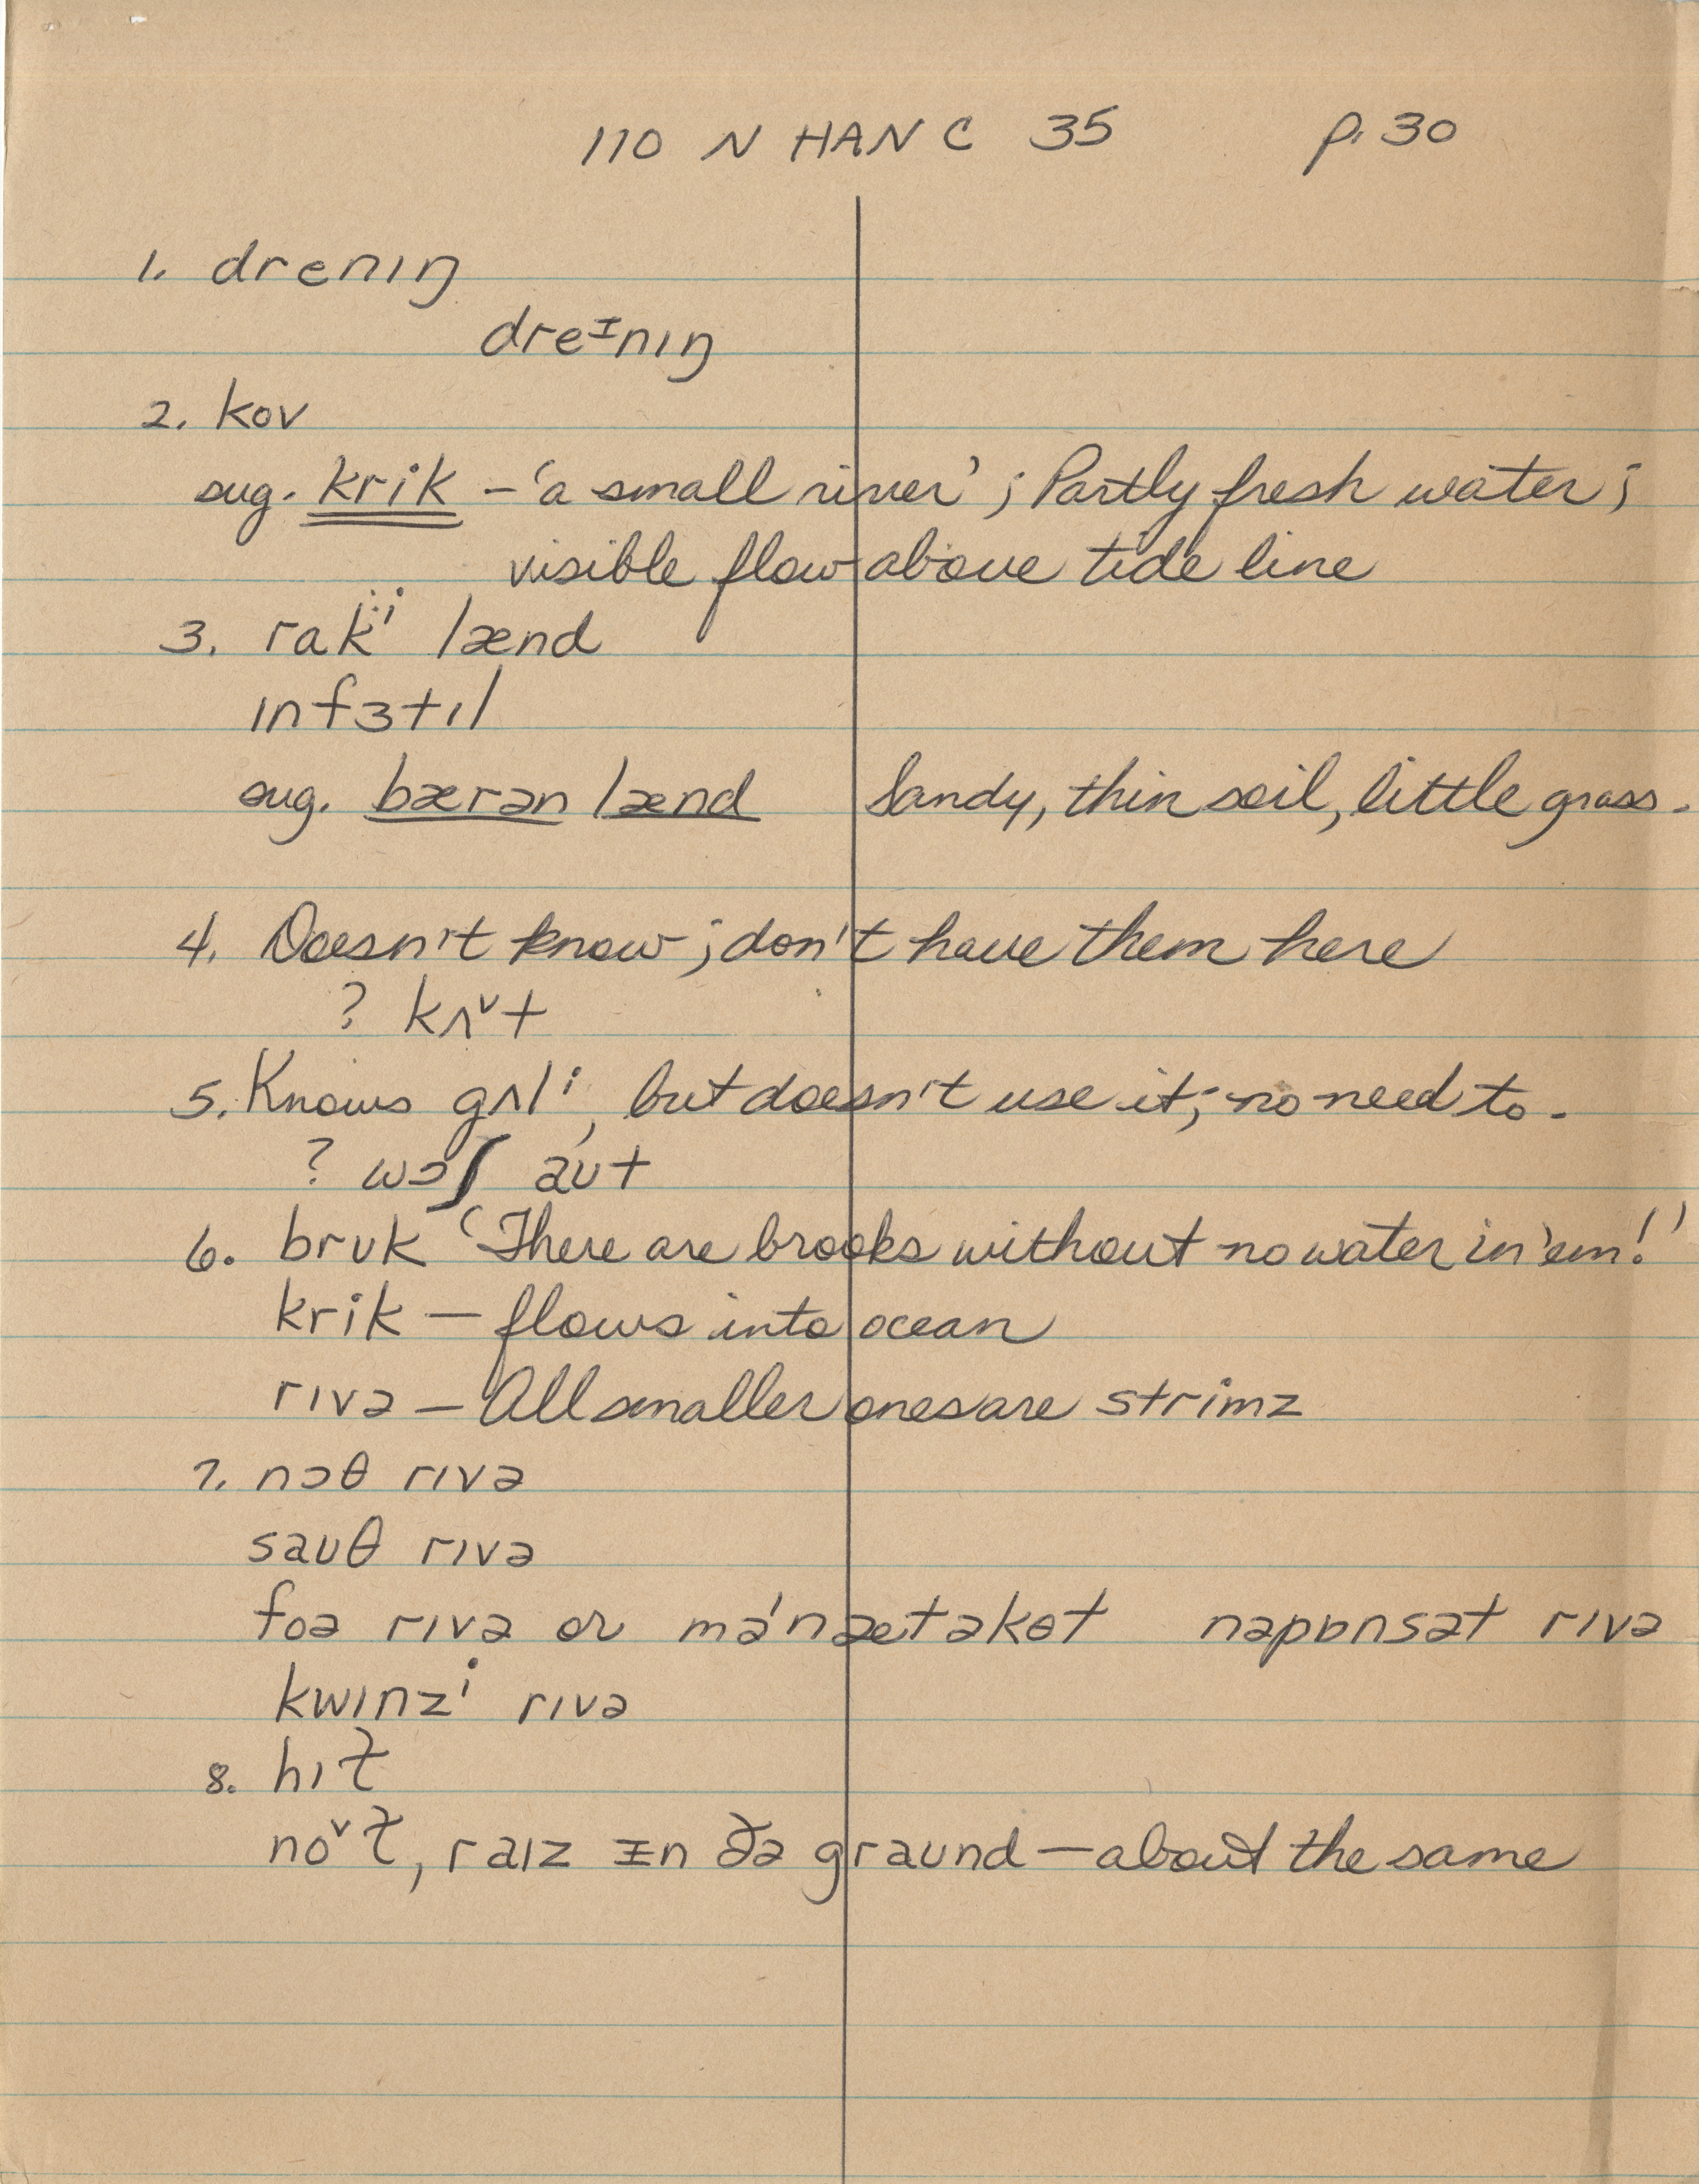 110 N HAN C 35 p. 30
1. drenɪŋ
dreᵻnɪŋ
2. kov
sug. krik – 'a small river'; Partly fresh water;
visible flow above tide line
3. rakⁱ lænd
ɪnfɜtɪl
sug. bærən lænd Sandy, thin soil, little grass.
4. Doesn't know; don't have them here
? kʌ˅t
5. Knows gʌlⁱ, but doesn't use it; no need to.
? wɔʃ aut
6. brʊk 'There are brooks without no water in 'em!'
krik – flows into ocean
rɪvə – All smaller ones are strimz
7. nɔθ rɪvə
sauθ rɪvə
foə rɪvə or mə'nætəkət nəpɒnsət rɪvə
kwɪnzⁱ rɪvə
8. hɪt̬
no˅t̬, raɪz ᵻn ðə graund – about the same